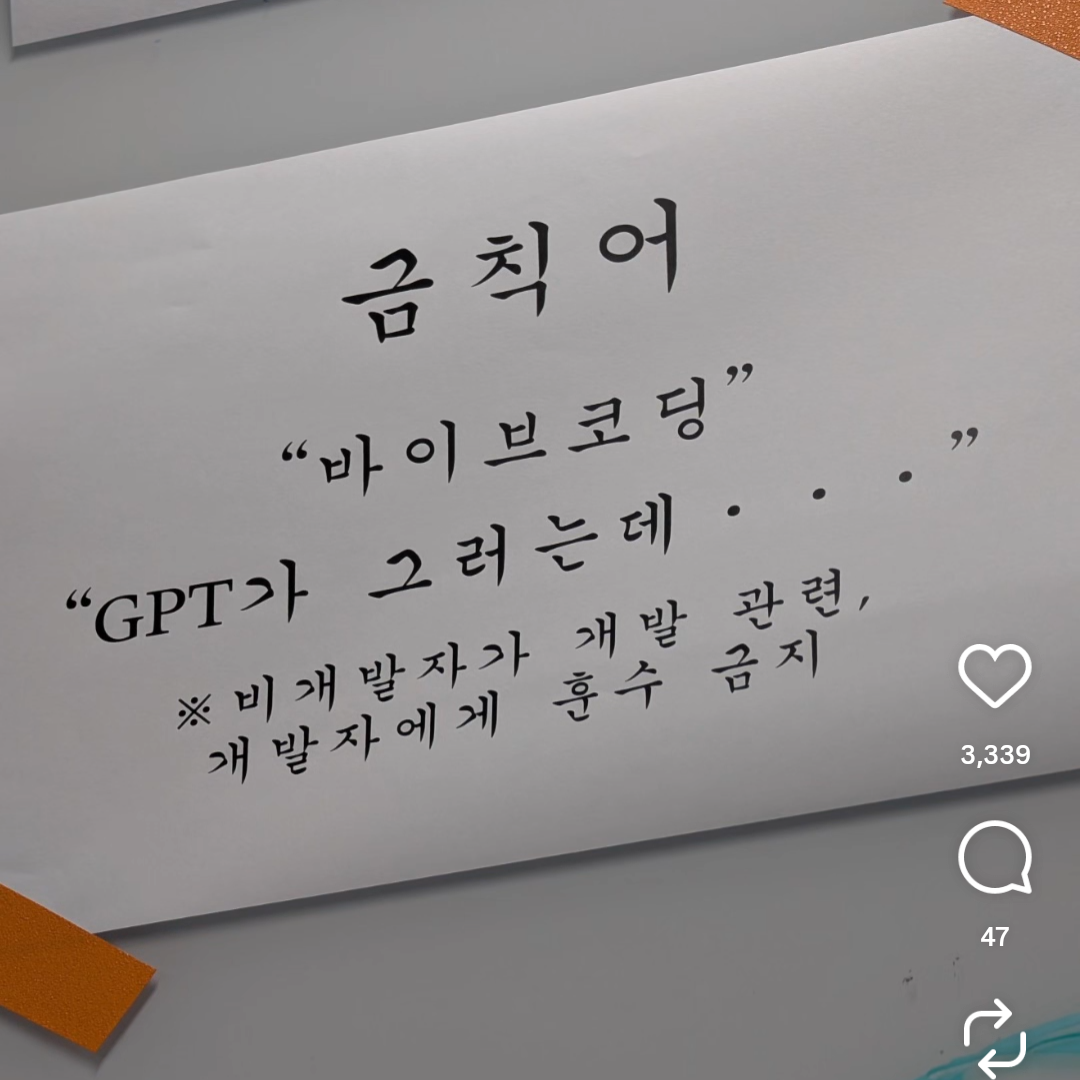 금칙어
“바이브코딩”
“GPT가 그러는데...”
※비개발자가 개발 관련,
개발자에게 훈수 금지
3,339
47